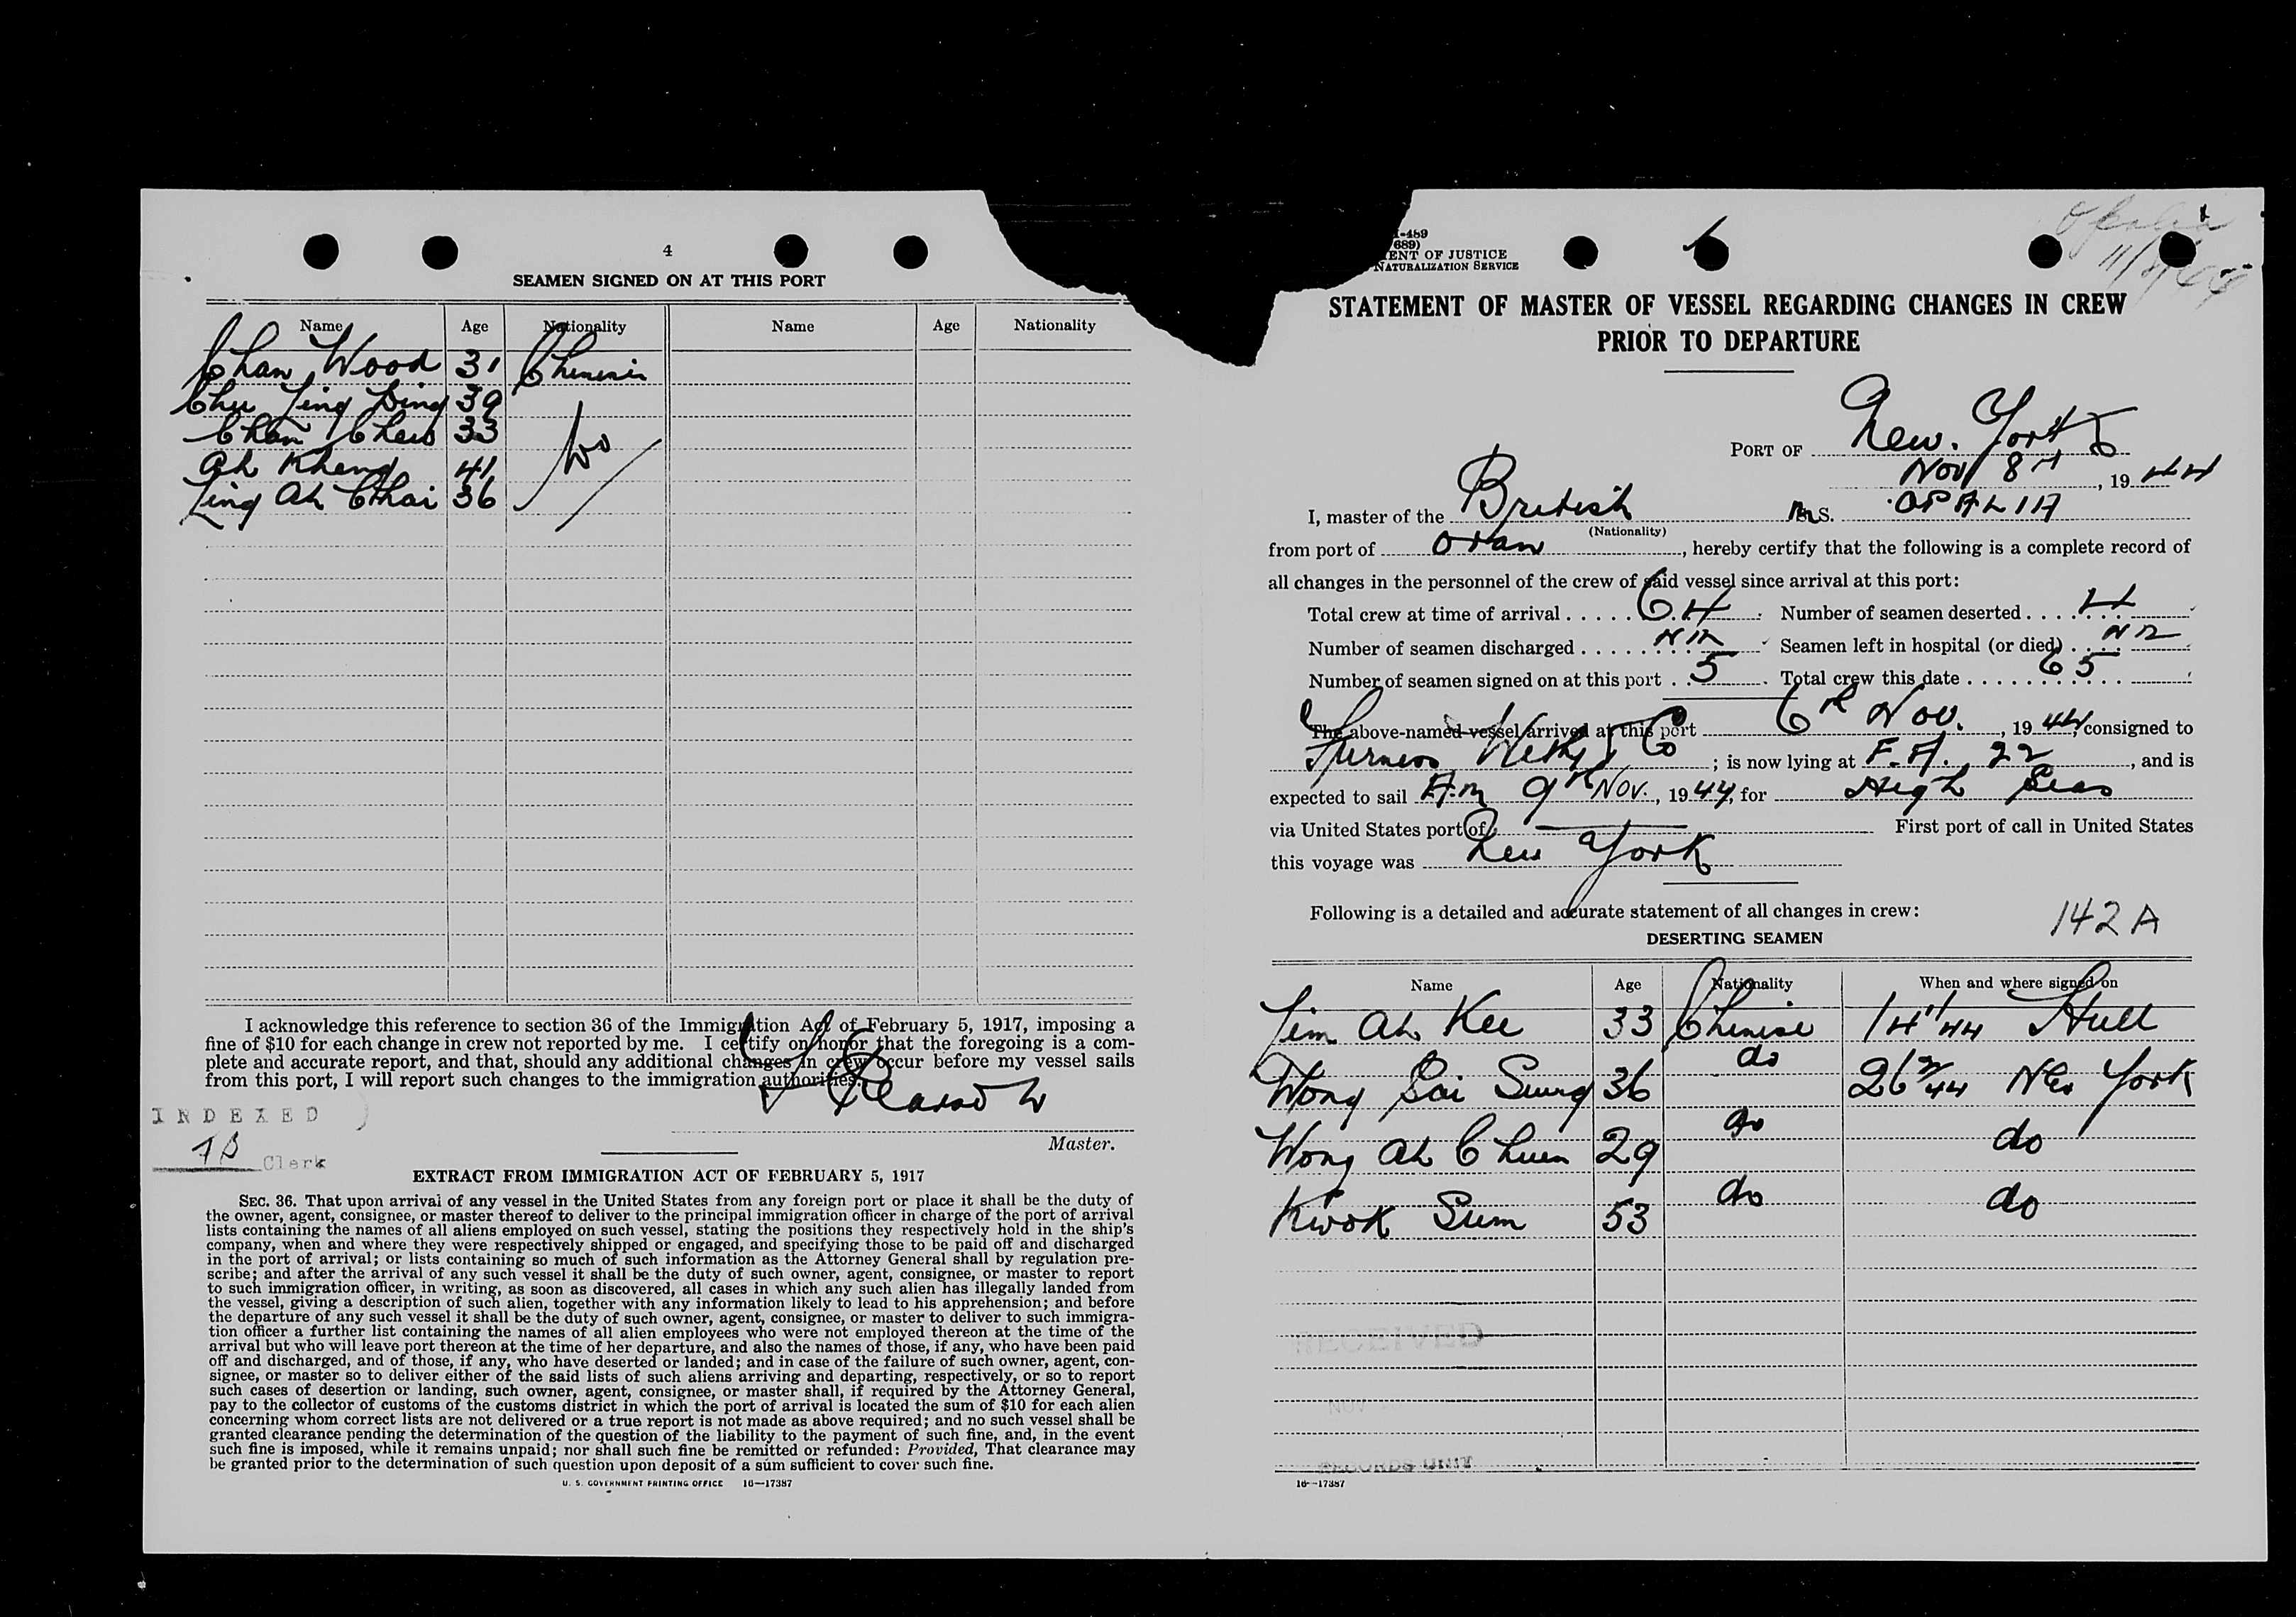 4
SEAMEN SIGNED ON AT THIS PORT
Name Age Nationality Name Age Nationality
Chan Wood 31 Chinese
Chu Ling Ding 39
Chan Chew 33
Ah Kheng 41
Ling Ah Chai 36
I acknowledge this reference to section 36 of the Immigration Act of February 5, 1917, imposing a
fine of $10 for each change in crew not reported by me. I certify on honor that the foregoing is a com-
plete and accurate report, and that, should any additional changes in crew occur before my vessel sails
from this port, I will report such changes to the immigration authorities.
INDEXED
Clerk
Master.
EXTRACT FROM IMMIGRATION ACT OF FEBRUARY 5, 1917
SEC. 36. That upon arrival of any vessel in the United States from any foreign port or place it shall be the duty of
the owner, agent, consignee, or master thereof to deliver to the principal immigration officer in charge of the port of arrival
lists containing the names of all aliens employed on such vessel, stating the positions they respectively hold in the ship's
company, when and where they were respectively shipped or engaged, and specifying those to be paid off and discharged
in the port of arrival; or lists containing so much of such information as the Attorney General shall by regulation pre-
scribe; and after the arrival of any such vessel it shall be the duty of such owner, agent, consignee, or master to report
to such immigration officer, in writing, as soon as discovered, all cases in which any such alien has illegally landed from
the vessel, giving a description of such alien, together with any information likely to lead to his apprehension; and before
the departure of any such vessel it shall be the duty of such owner, agent, consignee, or master to deliver to such immigra-
tion officer a further list containing the names of all alien employees who were not employed thereon at the time of the
arrival but who will leave port thereon at the time of her departure, and also the names of those, if any, who have been paid
off and discharged, and of those, if any, who have deserted or landed; and in case of the failure of such owner, agent, con-
signee, or master so to deliver either of the said lists of such aliens arriving and departing, respectively, or so to report
such cases of desertion or landing, such owner, agent, consignee, or master shall, if required by the Attorney General,
pay to the collector of customs of the customs district in which the port of arrival is located the sum of $10 for each alien
concerning whom correct lists are not delivered or a true report is not made as above required; and no such vessel shall be
granted clearance pending the determination of the question of the liability to the payment of such fine, and, in the event
such fine is imposed, while it remains unpaid; nor shall such fine be remitted or refunded: Provided, That clearance may
be granted prior to the determination of such question upon deposit of a sum sufficient to cover such fine.
U. S. GOVERNMENT PRINTING OFFICE 16—17387
-489
689)
ENT OF JUSTICE
NATURALIZATION SERVICE
STATEMENT OF MASTER OF VESSEL REGARDING CHANGES IN CREW
PRIOR TO DEPARTURE
PORT OF New York
Nov 8th, 1944
I, master of the British M.S. OPALIA
(Nationality)
from port of Oran, hereby certify that the following is a complete record of
all changes in the personnel of the crew of said vessel since arrival at this port:
Total crew at time of arrival 64 Number of seamen deserted 4
Number of seamen discharged Nil Seamen left in hospital (or died) Nil
Number of seamen signed on at this port 5 Total crew this date 65
The above-named vessel arrived at this port 6th Nov., 1944, consigned to
Furness Withy & Co; is now lying at F.A. 22, and is
expected to sail A.m 9th Nov., 1944, for High Seas
via United States port of First port of call in United States
this voyage was New York
Following is a detailed and accurate statement of all changes in crew:
142 A
DESERTING SEAMEN
Name Age Nationality When and where signed on
Lim Ah Kee 33 Chinese Hull
Wong Sai Sung 36 do New York
Wong Ah Chuen 29 do do
Kwok Sum 53 do do
RECEIVED
NOV
RECORDS UNIT
16—17387